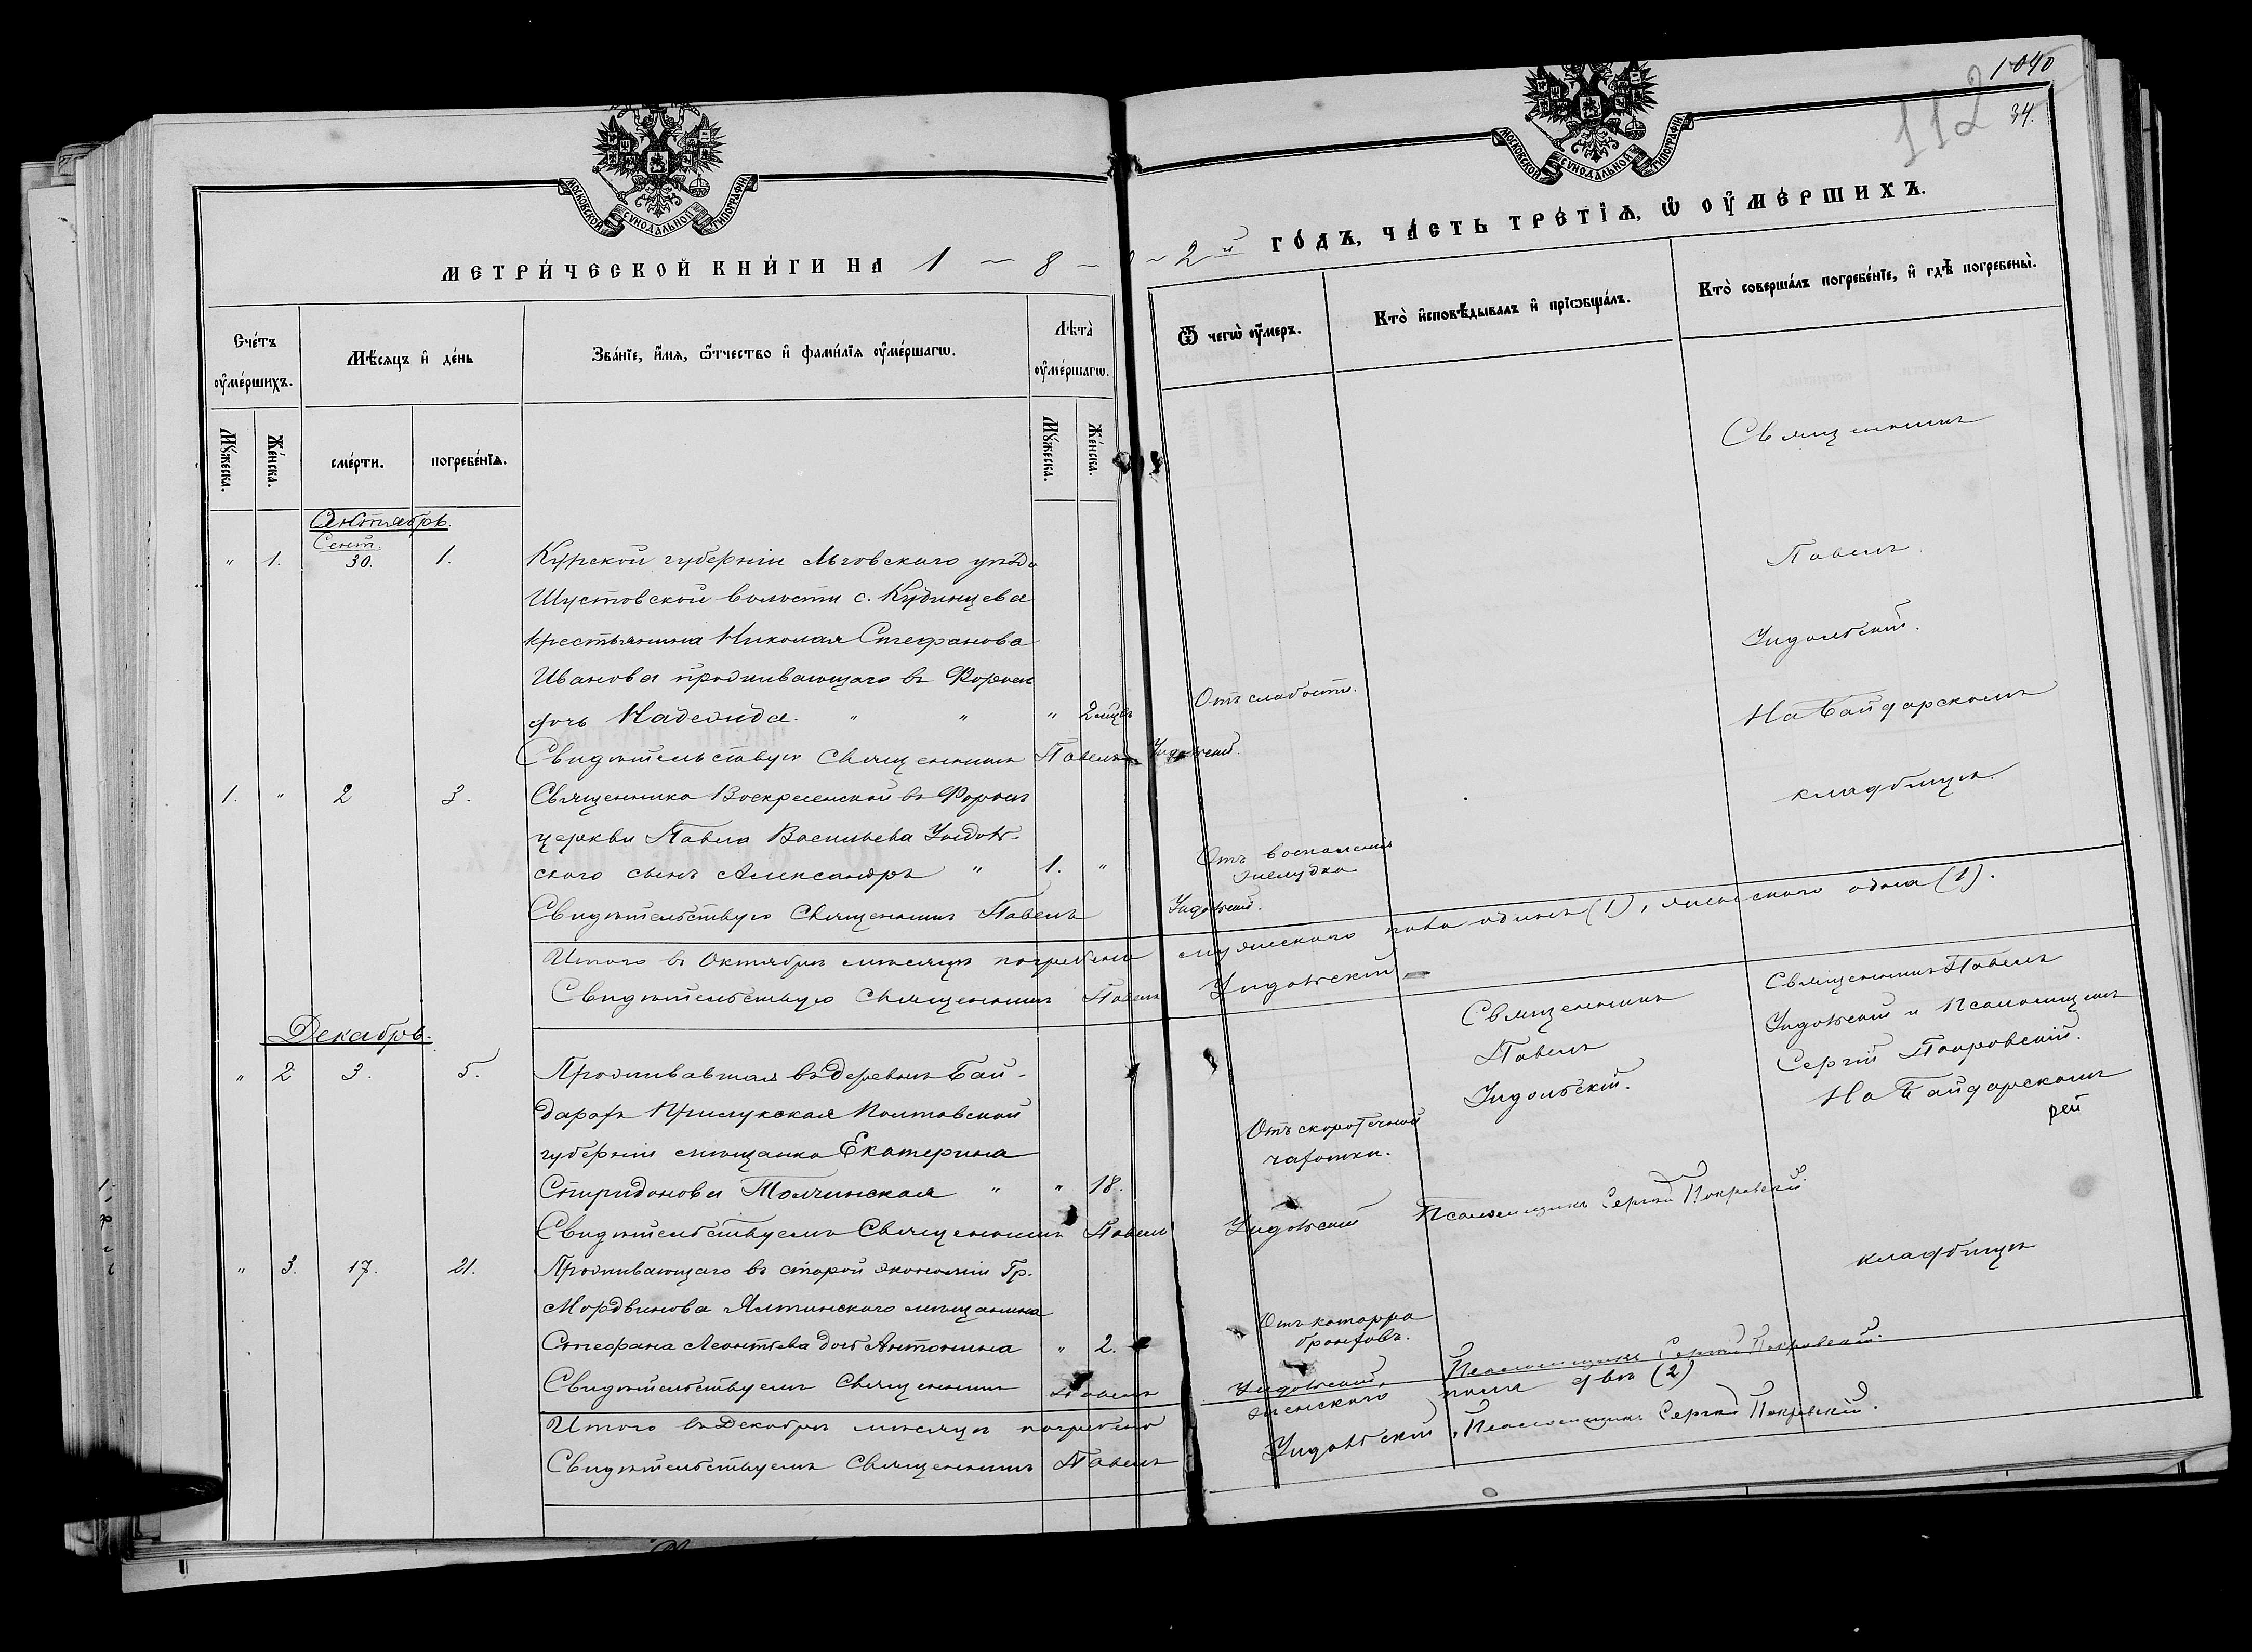 1040
112
34.
МОСКОВСКОЙ СѴНОДАЛЬНОЙ ТИПОГРАФІИ
МОСКОВСКОЙ СѴНОДАЛЬНОЙ ТИПОГРАФІИ
МЕТРИ́ЧЕСКОЙ КНИ́ГИ НА 1 – 8 – – 2 й ГО́ДЪ, ЧА́СТЬ ТРЕ́ТІѦ, Ѡ ОУМЕ́РШИХЪ.
Сче́тъ оумершихъ.
Мꙋжеска.
Же́нска.
Мѣ́сяцъ и де́нь
сме́рти.
погребе́нїѧ.
Зва́нїе, и҆́мя, ѻ҆́тчество и҆ фами́лїя оуме́ршагѡ.
Лѣта̀ оуме́ршагѡ.
Мꙋжеска.
Же́нска.
Ѿ чегѡ̀ оу҆́меръ.
Кто̀ и҆сповѣ́дывалъ и҆ прїѡбща́лъ.
Кто̀ соверша́лъ погребе́нїе, и҆ гдѣ̀ погребены̀.
Октябрь.
Сент.
" 1. 30. 1. Курской губерніи Льговскаго уѣзда
Шустовской волости с. Кудинцева
крестьянина Николая Стефанова
Иванова проживающаго въ Форосѣ
дочь Надежда. " " " 2 мѣц. Отъ слабости.
Священникъ
Павелъ
Ундольскій.
На Байдарскомъ
кладбищѣ.
Свидѣтельствую Священникъ Павелъ Ундольскій.
1. " 2 3. Священника Воскресенской въ Форосѣ
церкви Павла Васильева Ундоль-
скаго сынъ Александръ " 1. " Отъ воспаленія желудка
Свидѣтельствую Священникъ Павелъ Ундольскій.
Итого въ Октябрѣ мѣсяцѣ погребено мужескаго пола одинъ (1), женскаго одна (1).
Свидѣтельствую Священникъ Павелъ Ундольскій
Декабрь.
" 2 3. 5. Проживавшая въ деревнѣ Бай-
дарахъ Прилукская Полтавской
губерніи мѣщанка Екатерина
Спиридонова Толчинская " " 18. Отъ скоротечной чахотки.
Священникъ
Павелъ
Ундольскій.
Священникъ Павелъ
Ундольскій и Псаломщикъ
Сергій Покровскій.
На Байдарскомъ
кладбищѣ
Свидѣтельствуемъ Священникъ Павелъ Ундольскій Псаломщикъ Сергій Покровскій
" 3. 17. 21. Проживающаго въ старой экономіи Гр.
Мордвинова Ялтинскаго мѣщанина
Стефана Леонтьева дочь Антонина " 2. Отъ катарра бронховъ.
Свидѣтельствуемъ Священникъ Павелъ Ундольскій Псаломщикъ Сергій Покровскій.
Итого въ Декабрѣ мѣсяцѣ погребено женскаго пола двѣ (2)
Свидѣтельствуемъ Священникъ Павелъ Ундольскій, Псаломщикъ Сергій Покровскій.